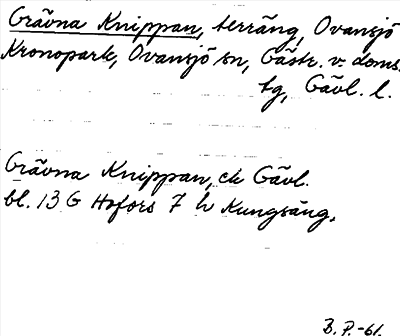 Grävna Knippan, terräng, Ovansjö
Kronopark, Ovansjö sn, Gästr. v. doms.
tg, Gävl. l.
Grävna Knippan, ek Gävl.
bl. 13 G Hofors 7 h Kungsäng.
B. P. -61.